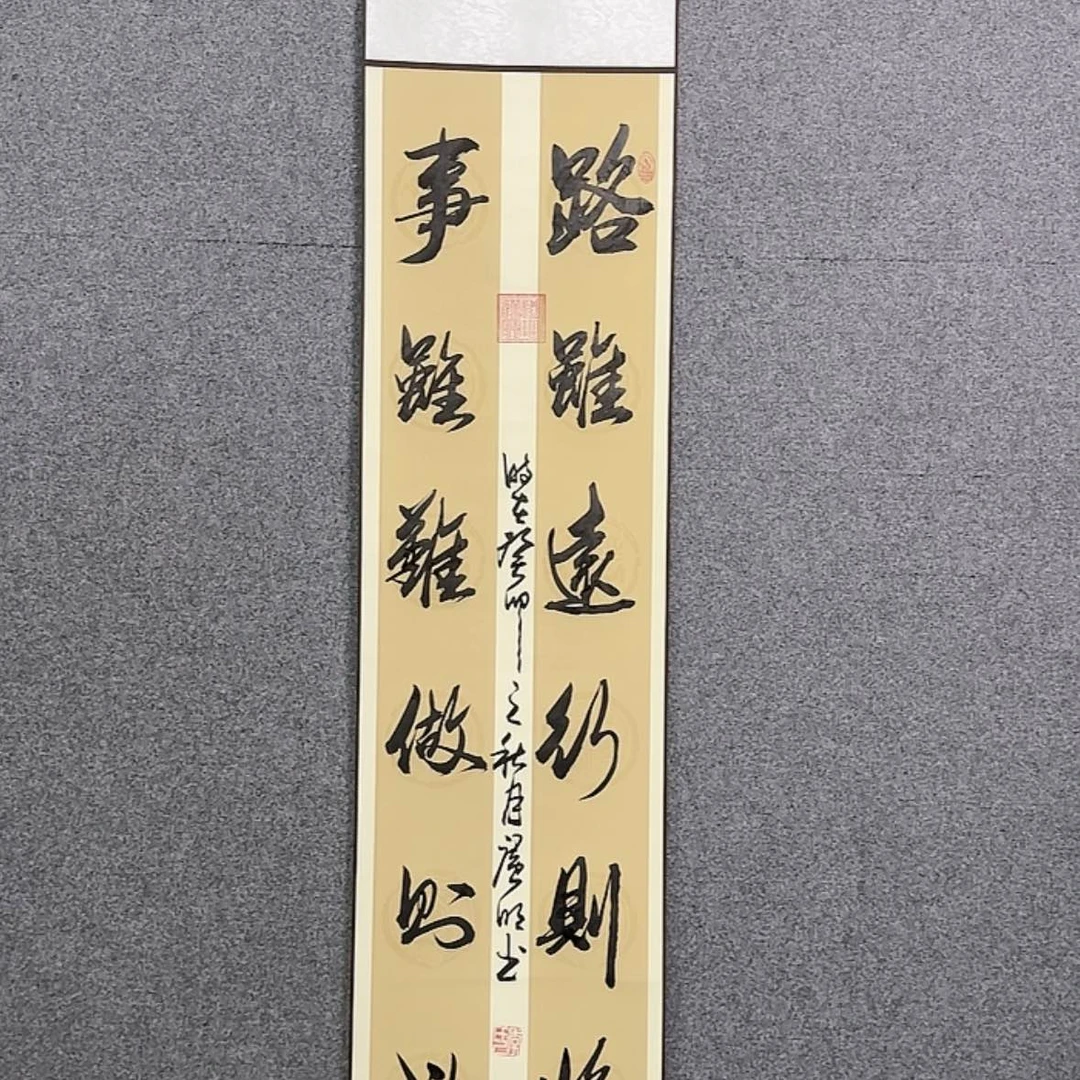 路雖遠行則
時在癸卯之秋月
事雖難做則